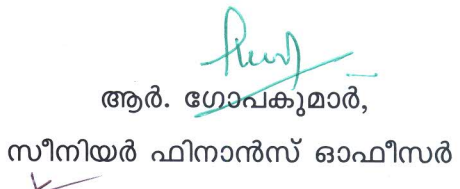 ആർ. ഗോപകുമാർ,
സീനിയർ ഫിനാൻസ് ഓഫീസർ